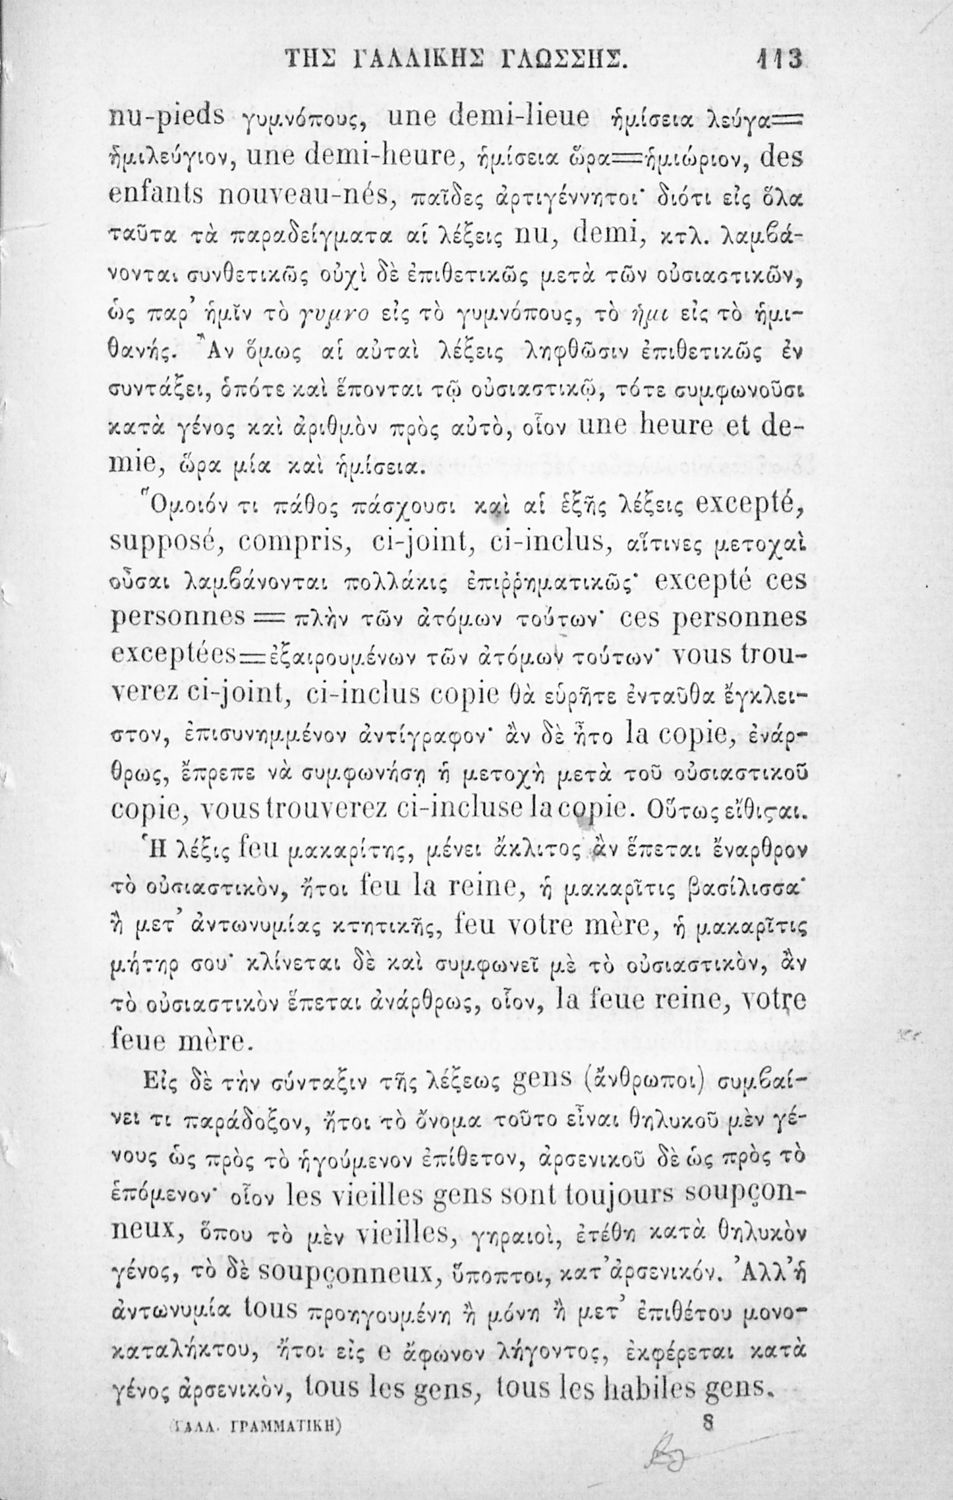 ΤΗΣ ΓΑΛΛΙΚΗΣ ΓΛΩΣΣΗΣ. 113
nu-pieds γυμνόπους, une demi-lieue ἡμίσεια λεύγα=
ἡμιλεύγιον, une demi-heure, ἡμίσεια ὥρα=ἡμιώριον, des
enfants nouveau-nés, παῖδες ἀρτιγέννητοι· διότι εἰς ὅλα
ταῦτα τὰ παραδείγματα αἱ λέξεις nu, demi, κτλ. λαμβά-
νονται συνθετικῶς οὐχὶ δὲ ἐπιθετικῶς μετὰ τῶν οὐσιαστικῶν,
ὡς παρ' ἡμῖν τὸ γυμνο εἰς τὸ γυμνόπους, τὸ ἡμι εἰς τὸ ἡμι-
θανής. Ἂν ὅμως αἱ αὐταὶ λέξεις ληφθῶσιν ἐπιθετικῶς ἐν
συντάξει, ὁπότε καὶ ἕπονται τῷ οὐσιαστικῷ, τότε συμφωνοῦσι
κατὰ γένος καὶ ἀριθμὸν πρὸς αὐτὸ, οἷον une heure et de-
mie, ὥρα μία καὶ ἡμίσεια.
Ὅμοιόν τι πάθος πάσχουσι καὶ αἱ ἑξῆς λέξεις excepté,
supposé, compris, ci-joint, ci-inclus, αἵτινες μετοχαὶ
οὖσαι λαμβάνονται πολλάκις ἐπιῤῥηματικῶς· excepté ces
personnes = πλὴν τῶν ἀτόμων τούτων· ces personnes
exceptées=ἐξαιρουμένων τῶν ἀτόμων τούτων· vous trou-
verez ci-joint, ci-inclus copie θὰ εὑρῆτε ἐνταῦθα ἔγκλει-
στον, ἐπισυνημμένον ἀντίγραφον· ἂν δὲ ἦτο la copie, ἐνάρ-
θρως, ἔπρεπε νὰ συμφωνήσῃ ἡ μετοχὴ μετὰ τοῦ οὐσιαστικοῦ
copie, vous trouverez ci-incluse la copie. Οὕτως εἴθισται.
Ἡ λέξις feu μακαρίτης, μένει ἄκλιτος ἂν ἕπεται ἔναρθρον
τὸ οὐσιαστικὸν, ἤτοι feu la reine, ἡ μακαρῖτις βασίλισσα·
ἢ μετ' ἀντωνυμίας κτητικῆς, feu votre mère, ἡ μακαρῖτις
μήτηρ σου· κλίνεται δὲ καὶ συμφωνεῖ μὲ τὸ οὐσιαστικὸν, ἂν
τὸ οὐσιαστικὸν ἕπεται ἀνάρθρως, οἷον, la feue reine, votre
feue mère.
Εἰς δὲ τὴν σύνταξιν τῆς λέξεως gens (ἄνθρωποι) συμβαί-
νει τι παράδοξον, ἤτοι τὸ ὄνομα τοῦτο εἶναι θηλυκοῦ μὲν γέ-
νους ὡς πρὸς τὸ ἡγούμενον ἐπίθετον, ἀρσενικοῦ δὲ ὡς πρὸς τὸ
ἑπόμενον· οἷον les vieilles gens sont toujours soupçon-
neux, ὅπου τὸ μὲν vieilles, γηραιοὶ, ἐτέθη κατὰ θηλυκὸν
γένος, τὸ δὲ soupçonneux, ὕποπτοι, κατ' ἀρσενικόν. Ἀλλ' ἡ
ἀντωνυμία tous προηγουμένη ἢ μόνη ἢ μετ' ἐπιθέτου μονο-
καταλήκτου, ἤτοι εἰς e ἄφωνον λήγοντος, ἐκφέρεται κατὰ
γένος ἀρσενικὸν, tous les gens, tous les habiles gens.
(ΓΑΛΛ. ΓΡΑΜΜΑΤΙΚΗ) 8